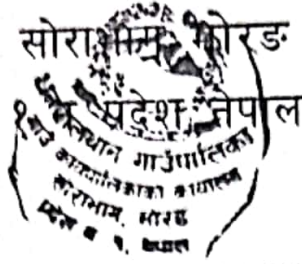 सोराभाग मोरङ
१ प्रदेश नेपाल
धनपालथान गाउँपालिका
गाउँ कार्यपालिकाको कार्यालय
सोराभाग, मोरङ
प्रदेश नं १, नेपाल